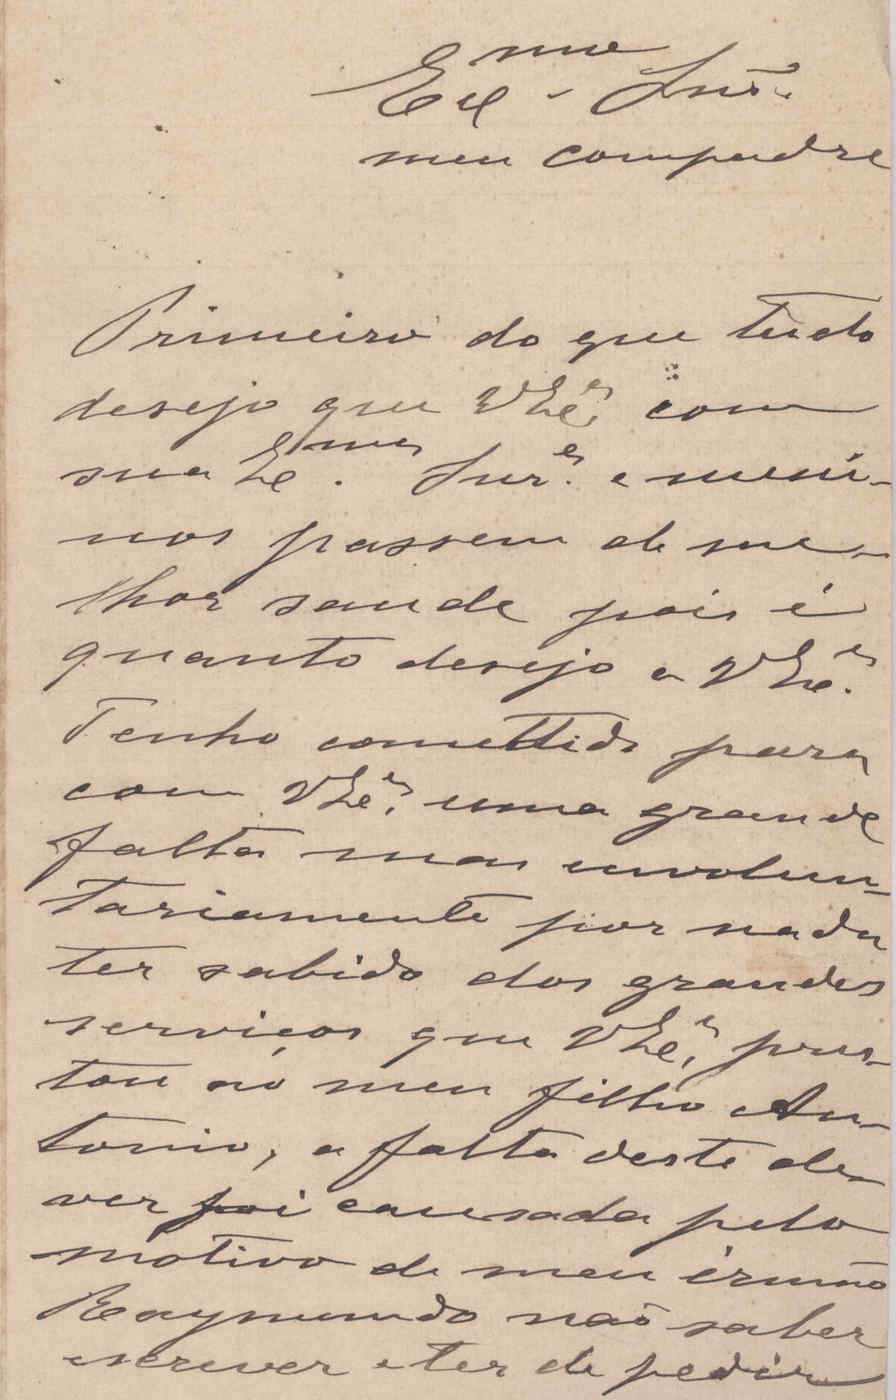 Exmo Snr.
meu compadre
Primeiro do que tudo
desejo que VExa. com
sua Exmas. Snras. e meni-
nos passem de me-
lhor saude pois é
quanto desejo a VExa.
Tenho comettido para
com VExa. uma grande
falta mas envolun-
tariamente por nada
ter sabido dos grandes
serviços que VExa. pres-
tou ao meu filho An-
tonio, a falta deste de-
ver foi causada pelo
motivo de meu irmão
Raymundo não saber
escrever e ter de pedir